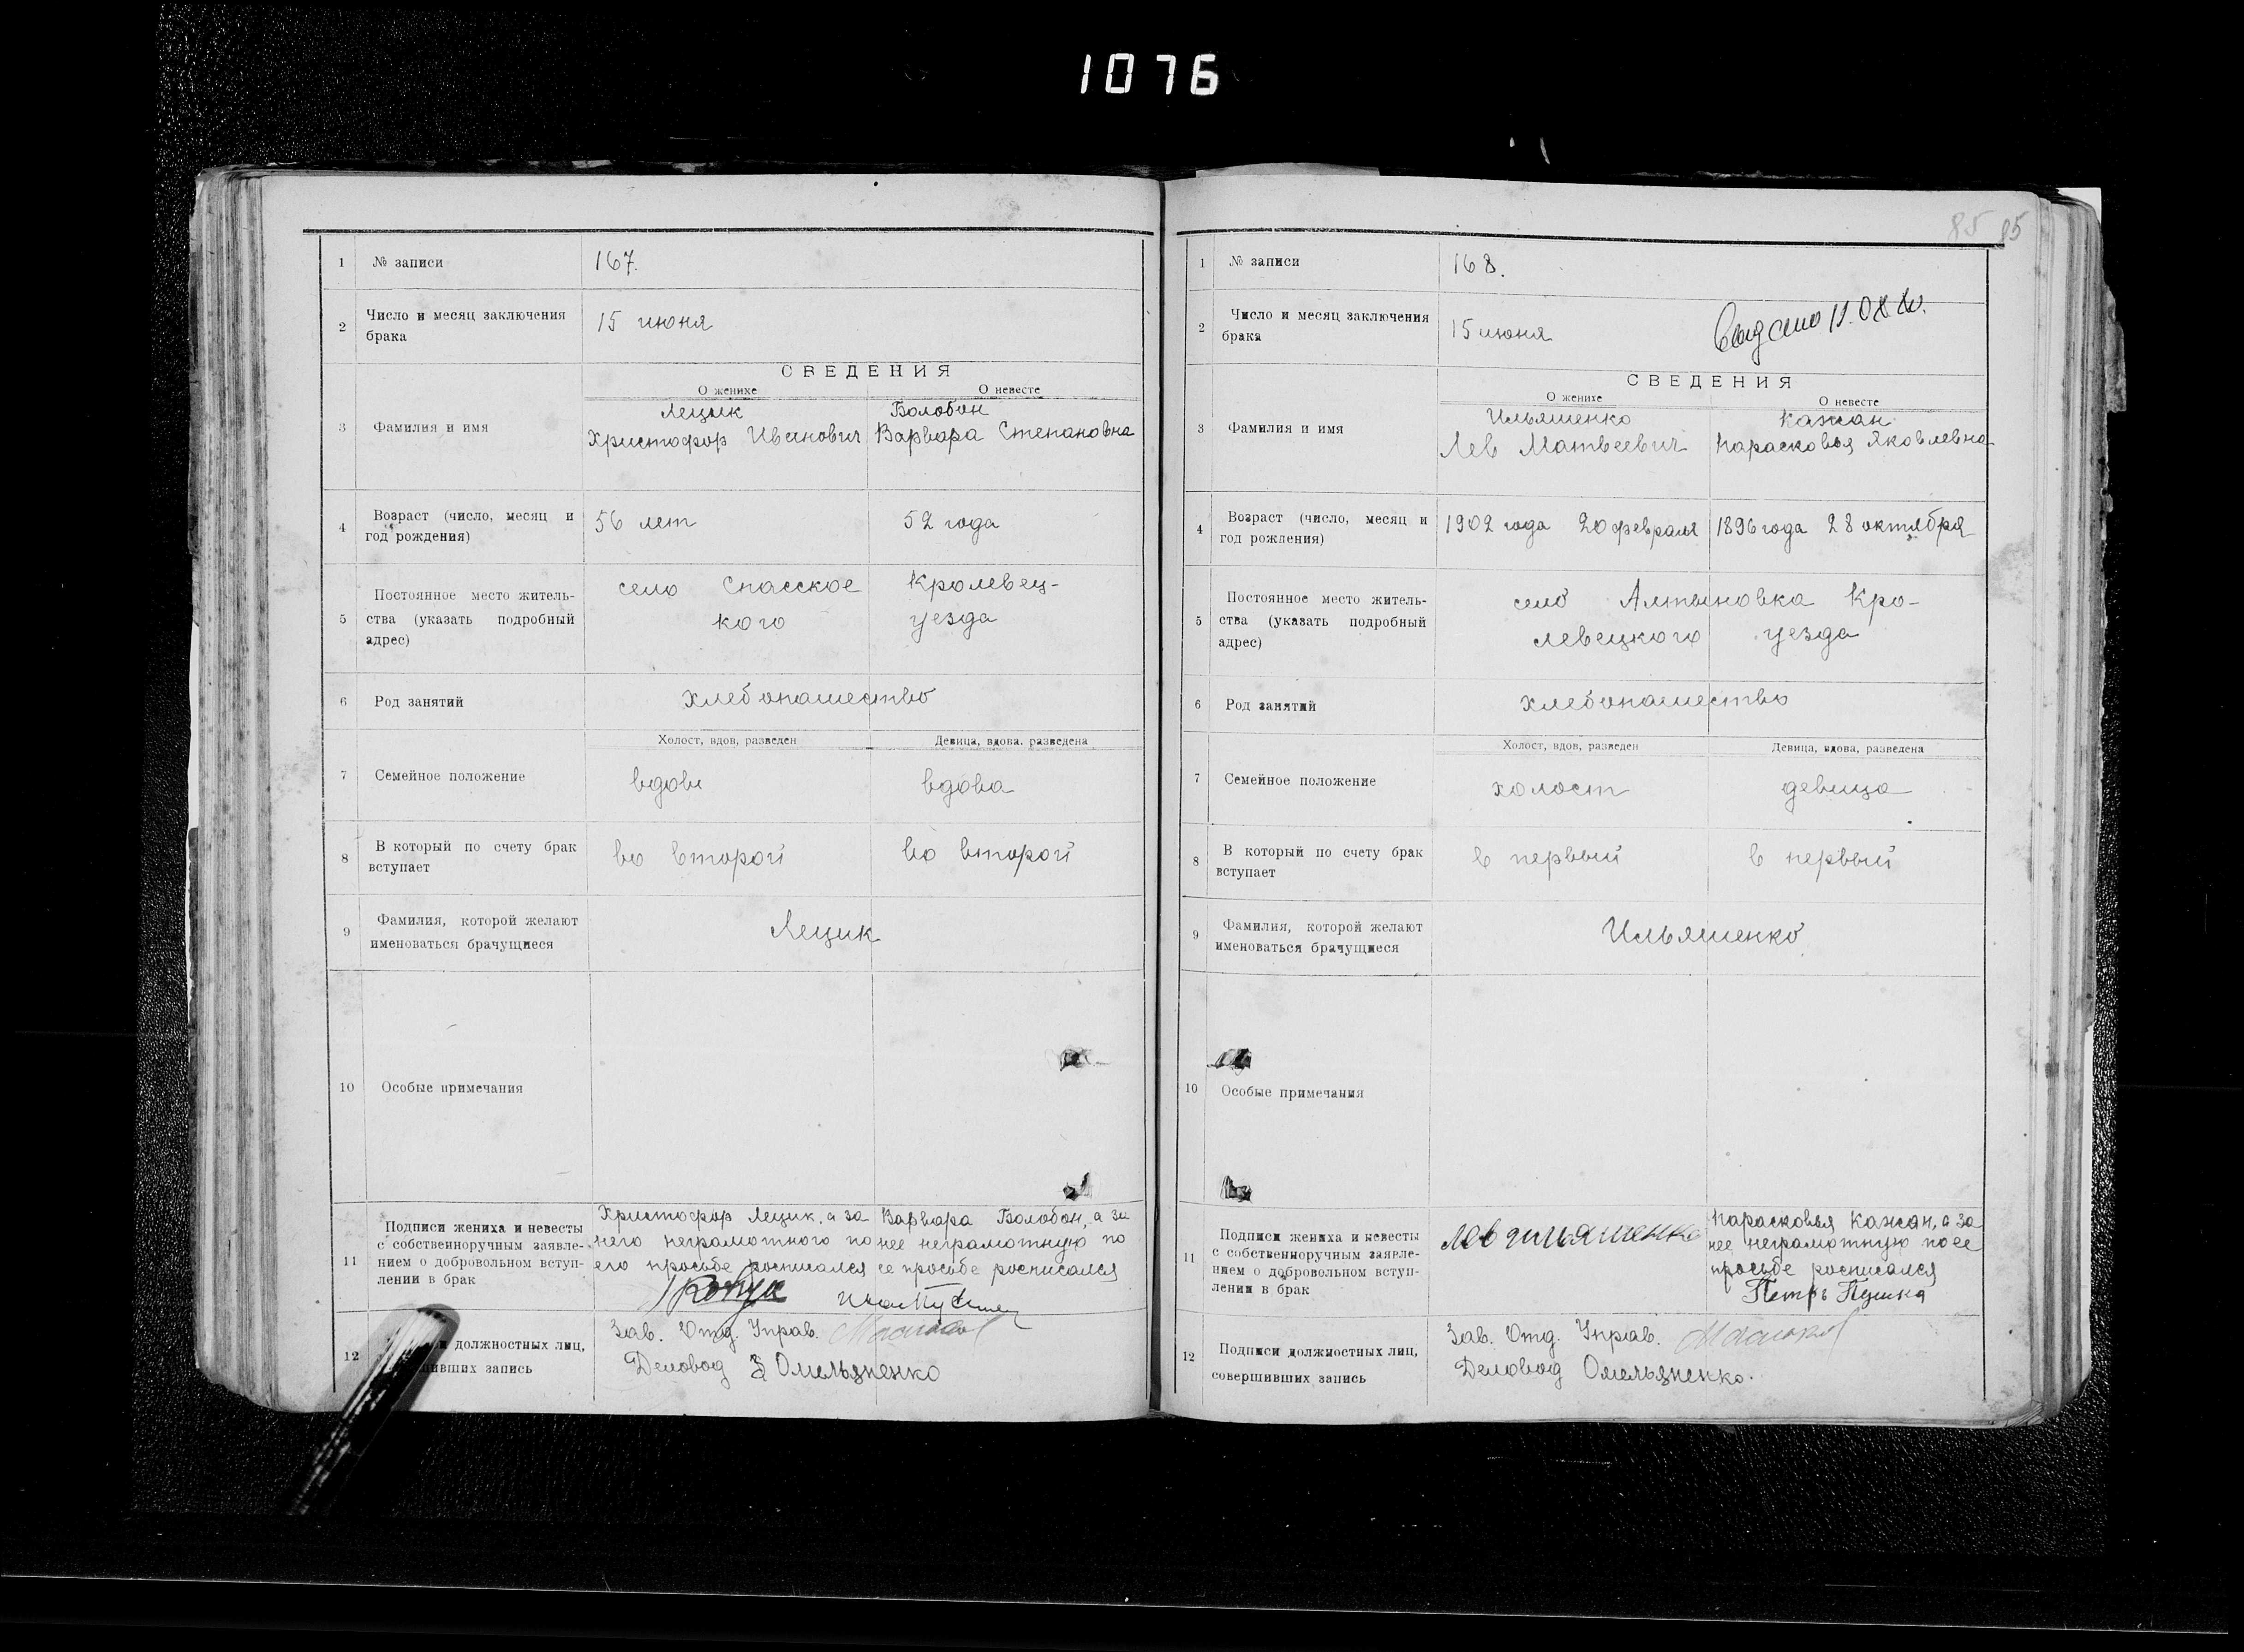 1076
1 № записи 167.
2 Число и месяц заключения
брака
15 июня
СВЕДЕНИЯ
О женихе О невесте
3 Фамилия и имя
Лещик Болобон
Христофор Иванович Варвара Степановна
4 Возраст (число, месяц и
год рождения)
56 лет 52 года
5 Постоянное место житель-
ства (указать подробный
адрес)
село Спасское Кролевец-
кого уезда
6 Род занятий хлебопашество
Холост, вдов, разведен Девица, вдова, разведена
7 Семейное положение вдовъ вдова
8 В который по счету брак
вступает
во второй во второй
9 Фамилия, которой желают
именоваться брачущиеся
Лещик
10 Особые примечания
11 Подписи жениха и невесты
с собственноручным заявле-
нием о добровольном вступ-
лении в брак
Христофор Лещик, а за
него неграмотного по
его просьбе росписался
Варвара Болобон, а за
нее неграмотную по
ее просьбе росписался
12 должностных лиц,
запись
Зав. Отд. Управ.
Деловод Омельяненко
85 85
1 № записи 168.
2 Число и месяц заключения
брака
15 июня
Выдано 11.08
СВЕДЕНИЯ
О женихе О невесте
3 Фамилия и имя
Ильяшенко Кажан
Лев Матвеевич Парасковья Яковлевна
4 Возраст (число, месяц и
год рождения)
1902 года 20 февраля 1896 года 28 октября
5 Постоянное место житель-
ства (указать подробный
адрес)
село Алтыновка Кро-
левецкого уезда
6 Род занятий хлебопашество
Холост, вдов, разведен Девица, вдова, разведена
7 Семейное положение холост девица
8 В который по счету брак
вступает
в первый в первый
9 Фамилия, которой желают
именоваться брачущиеся
Ильяшенко
10 Особые примечания
11 Подписи жениха и невесты
с собственноручным заявле-
нием о добровольном вступ-
лении в брак
Лев Ильяшенко
Парасковья Кажан, а за
нее неграмотную по ее
просьбе росписался
Петръ Пушка
12 Подписи должностных лиц,
совершивших запись
Зав. Отд. Управ.
Деловод Омельяненко.